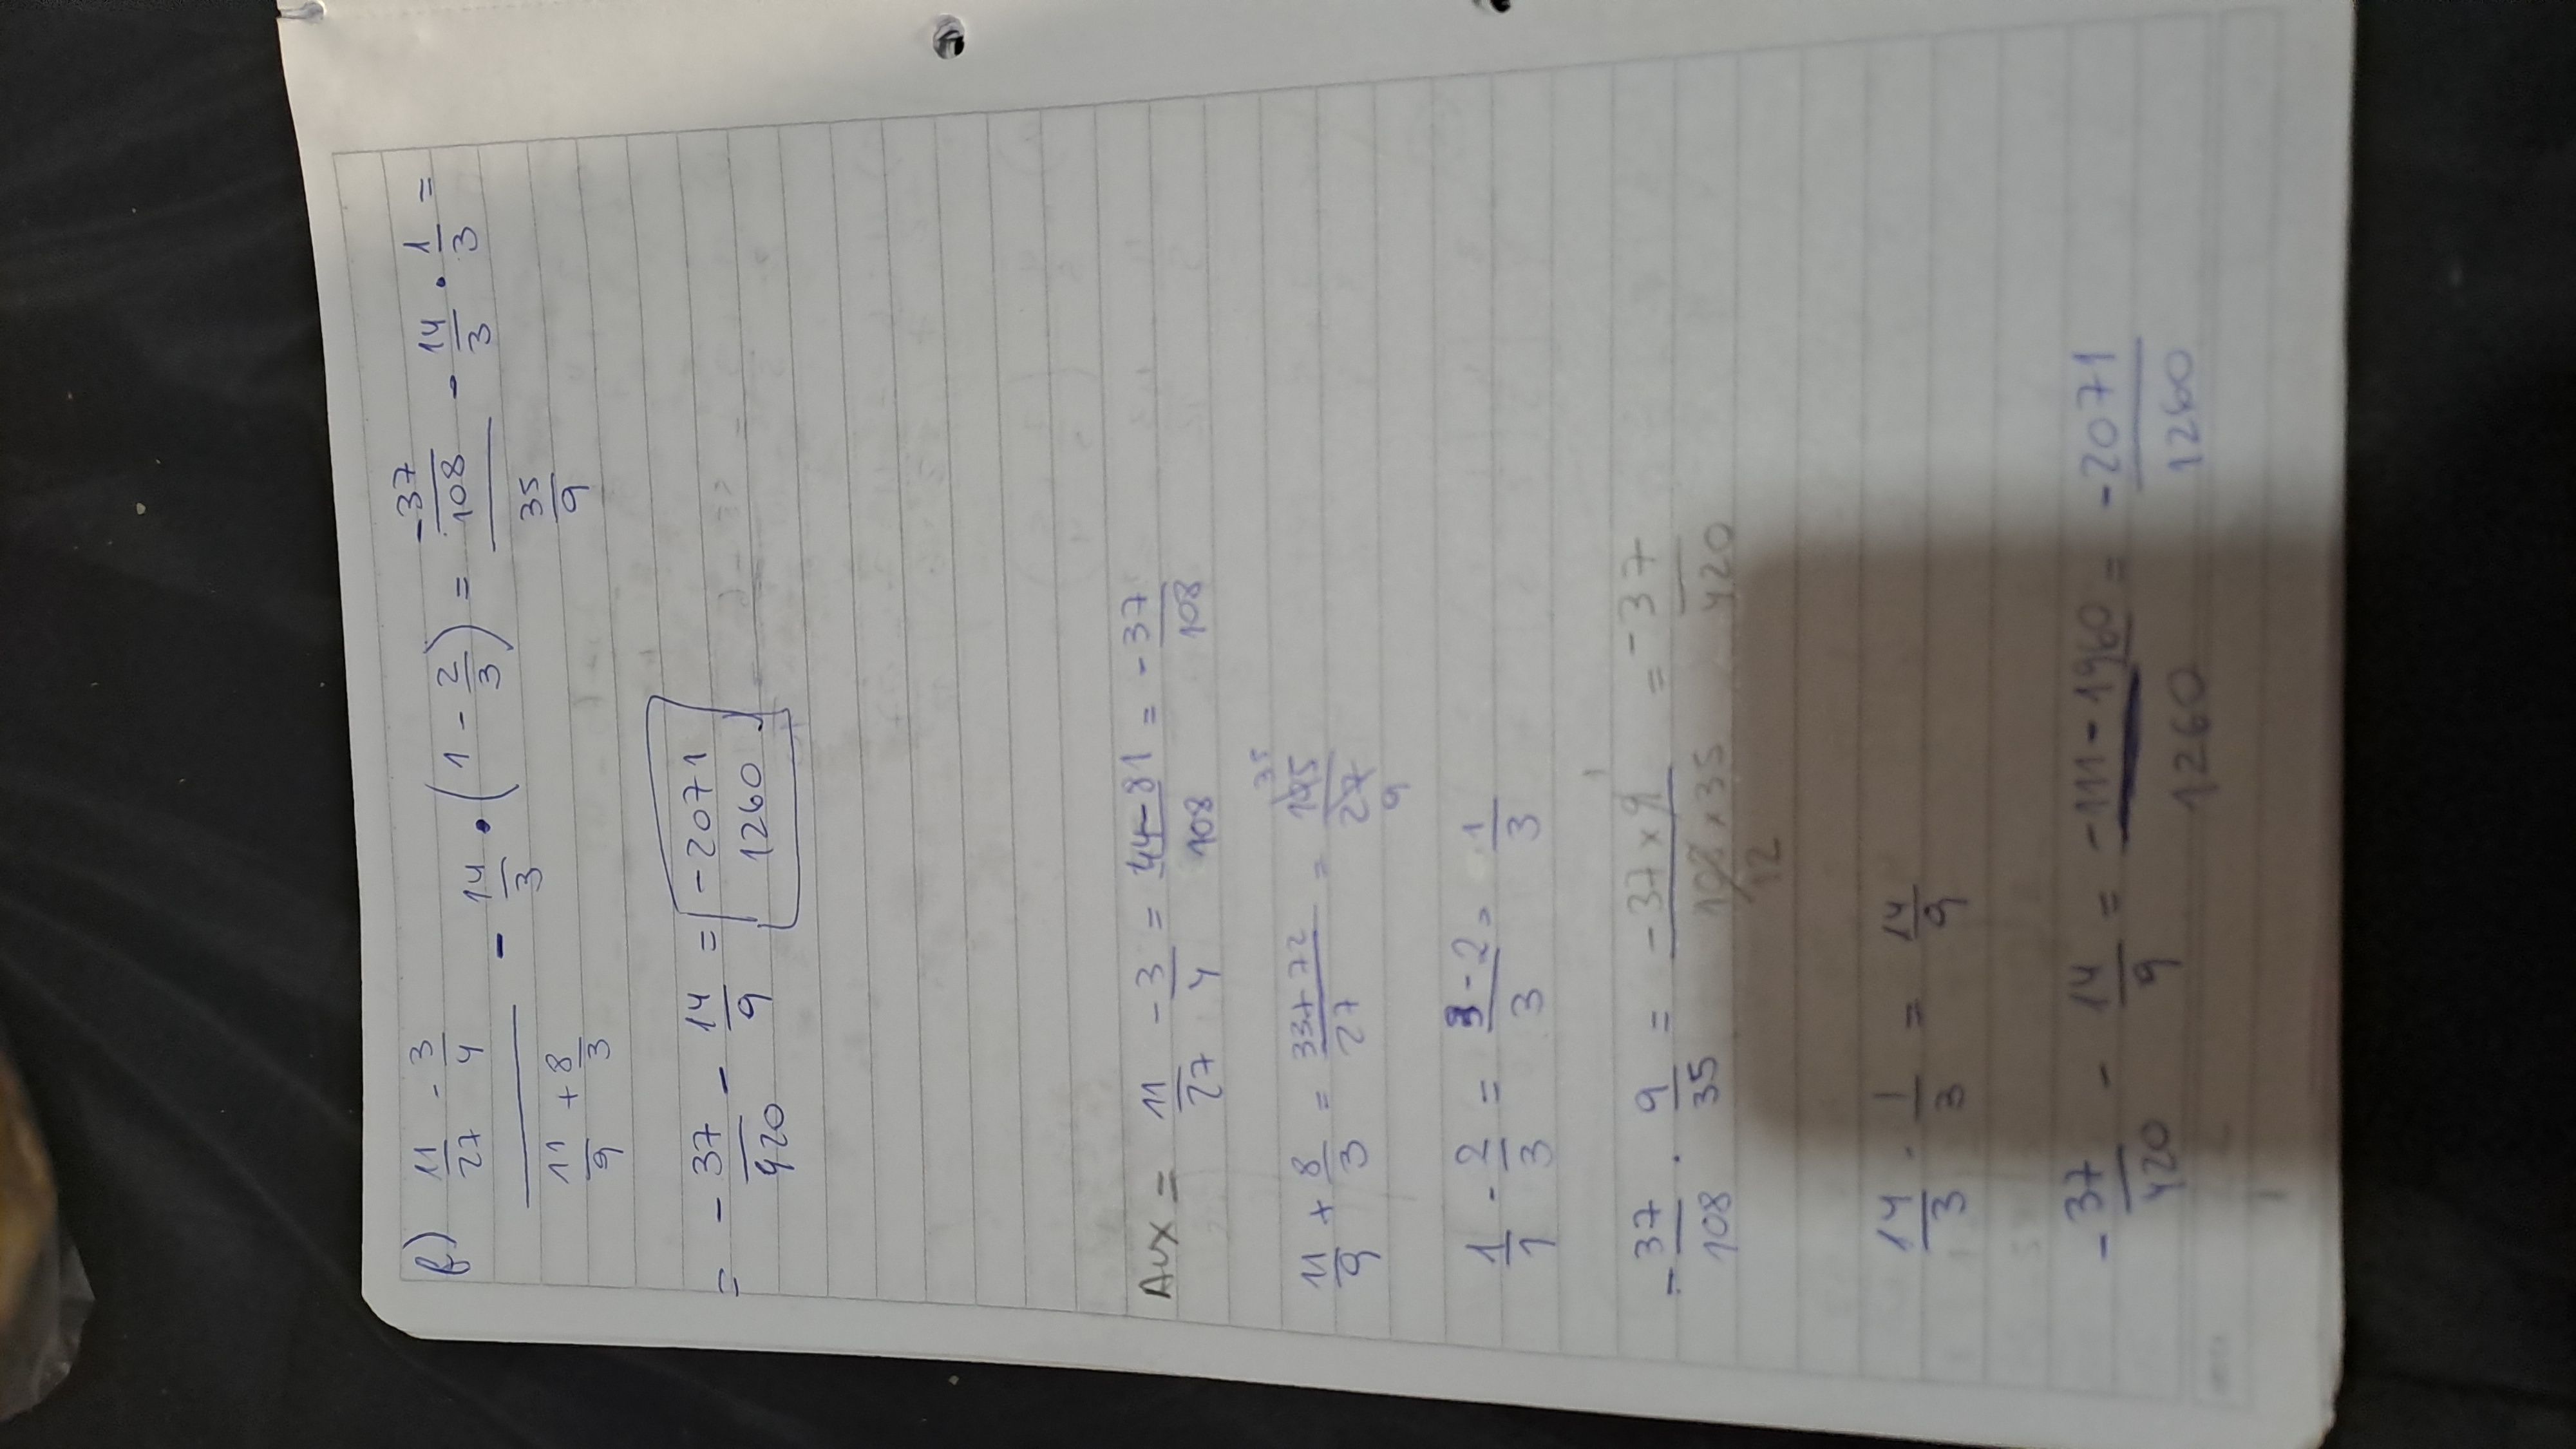 f) (11/27 - 3/4)/(11/9 + 8/3) - 14/3 · (1 - 2/3) = (-37/108)/(35/9) - 14/3 · 1/3 =
= -37/420 - 14/9 = -2071/1260
Aux = 11/27 - 3/4 = 44-81/108 = -37/108
11/9 + 8/3 = 33+72/27 = 105/27 35/9
1/1 - 2/3 = 3-2/3 = 1/3
-37/108 · 9/35 = -37x9/108x35 1 12 = -37/420
14/3 · 1/3 = 14/9
-37/420 - 14/9 = -111-1960/1260 = -2071/1260